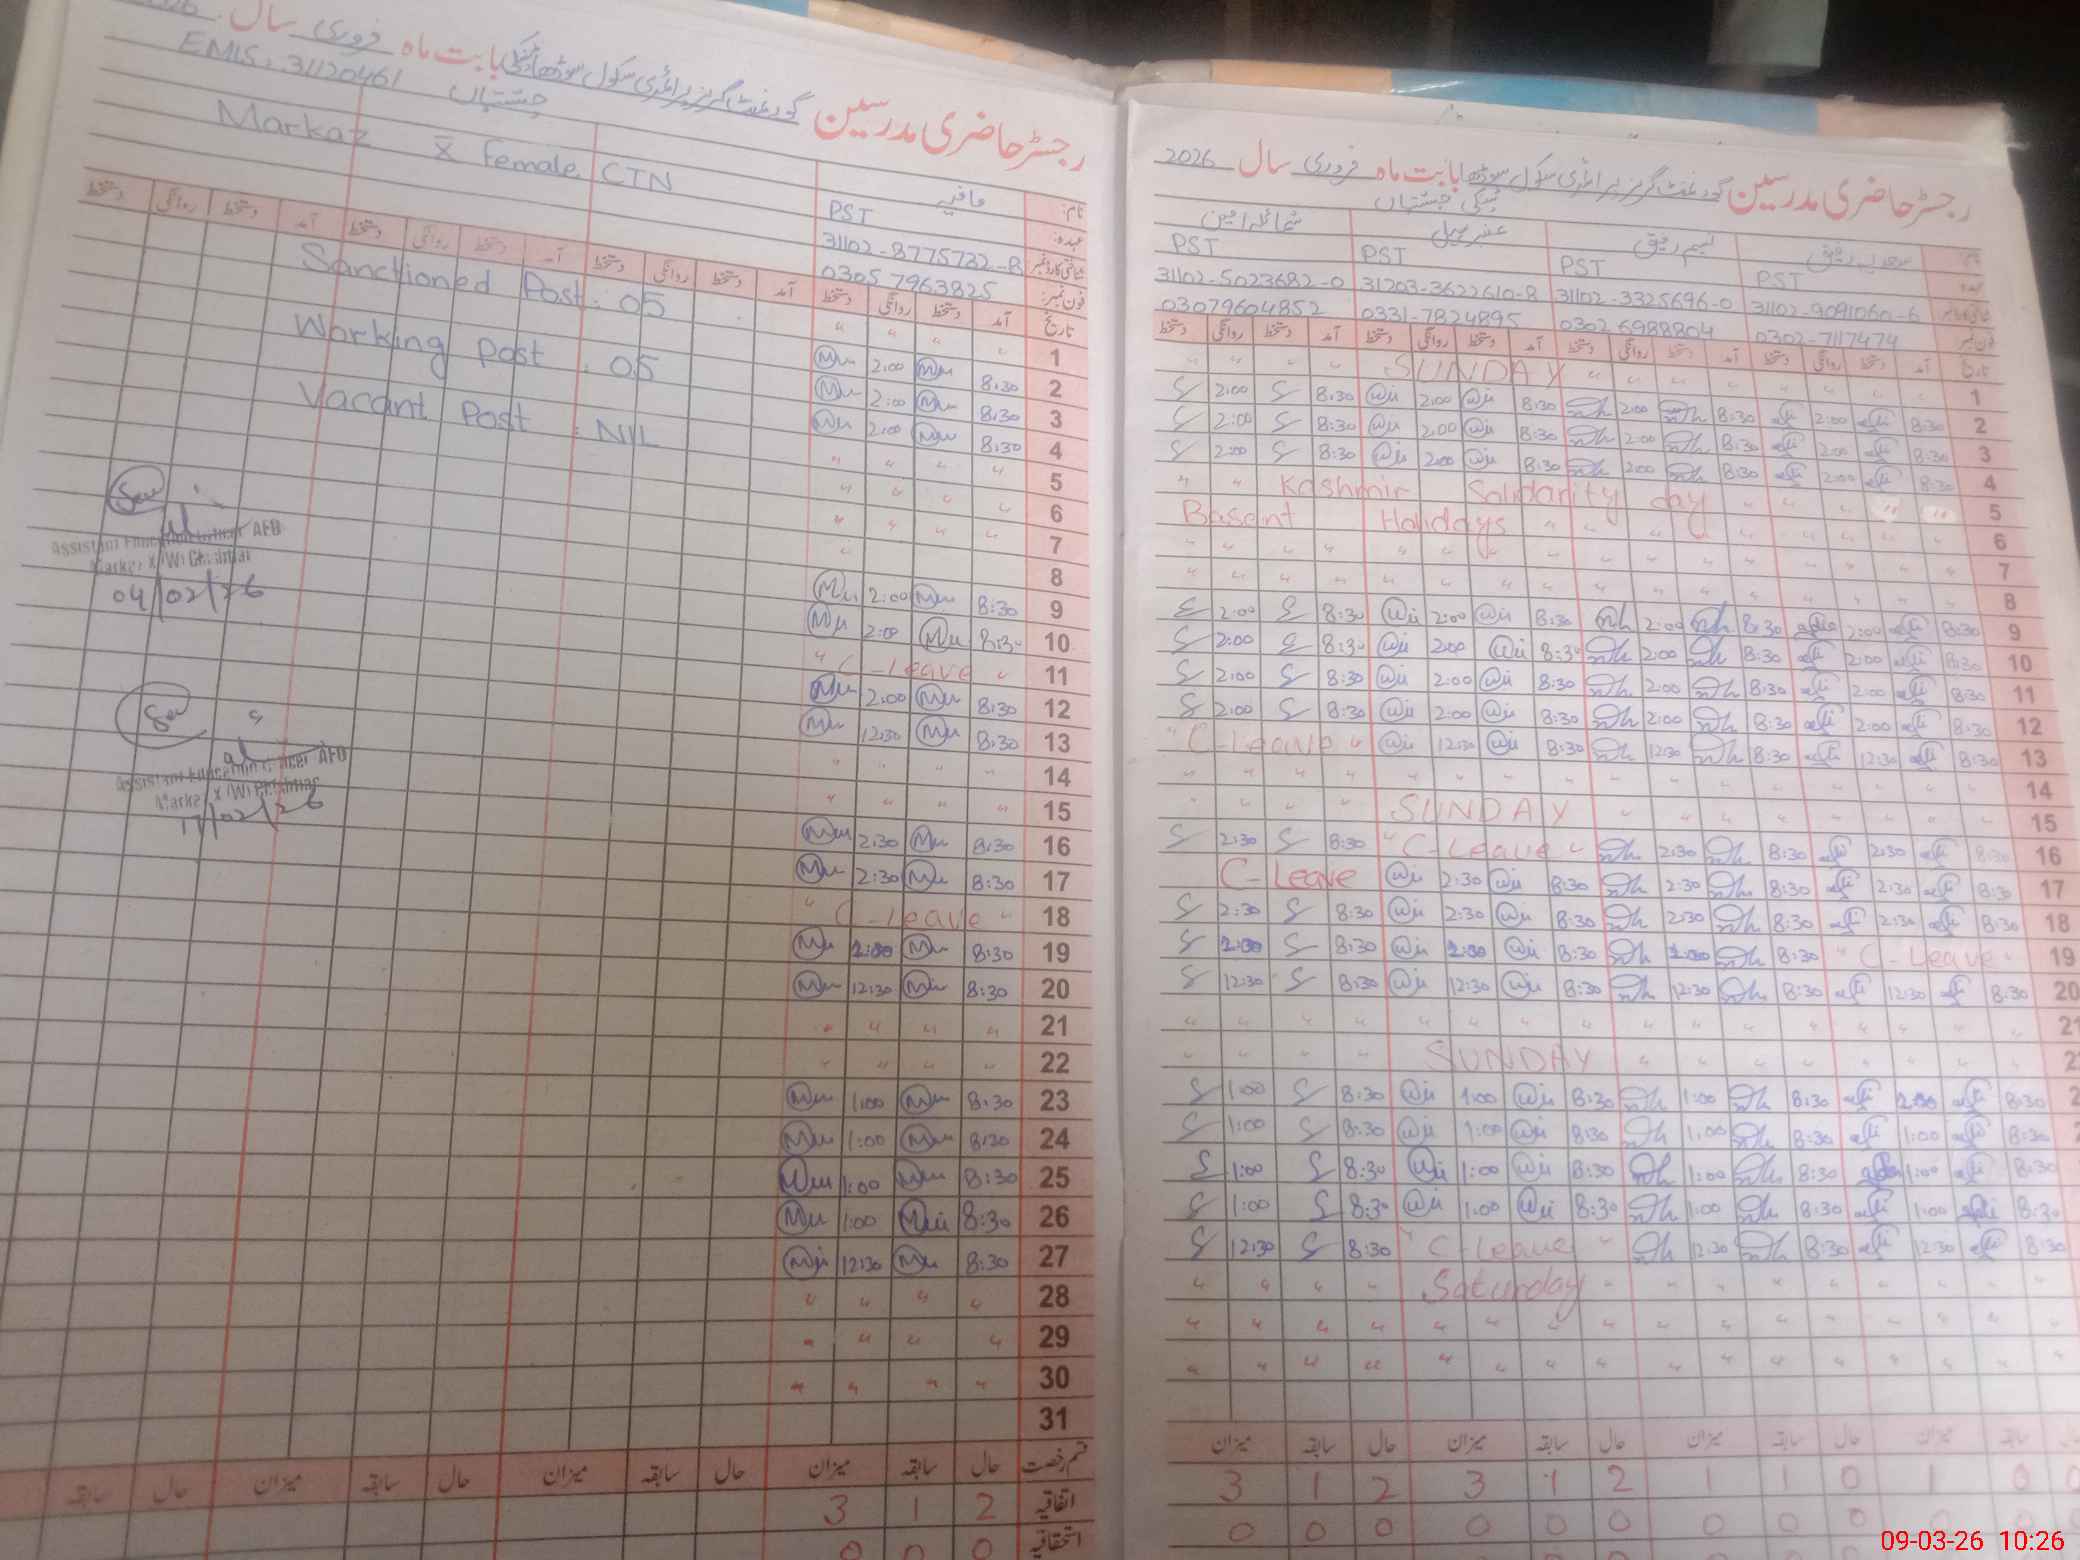 رجسٹر حاضری مدرسین گورنمنٹ گرلز پرائمری سکول سوڈھا بابت ماہ فروری سال 2026
چشتیاں
EMIS: 31120461
Markaz X Female CTN
نام:
عہدہ: PST
شناختی کارڈ نمبر 31102-8775732-8
فون نمبر: 0305 7963825
تاریخ آمد دستخط روانگی دستخط آمد دستخط روانگی دستخط آمد دستخط روانگی دستخط
Sanctioned Post: 05
Working Post: 05
Vacant Post: NIL
1 " " " "
2 8:30 2:00
3 8:30 2:00
4 8:30 2:00
5 " " " "
6 " " " "
7 " " " "
8
9 8:30 2:00
10 8:30 2:00
11 " C-Leave "
12 8:30 2:00
13 8:30 12:30
14 " " " "
15 " " " "
16 8:30 2:30
17 8:30 2:30
18 " C-Leave "
19 8:30 2:00
20 8:30 12:30
21 " " " "
22 " " " "
23 8:30 1:00
24 8:30 1:00
25 8:30 1:00
26 8:30 1:00
27 8:30 12:30
28 " " " "
29 " " " "
30 " " " "
31
قسم رخصت حال سابقہ میزان حال سابقہ میزان حال سابقہ میزان حال سابقہ
اتفاقیہ 2 1 3
استحقاقیہ 0 0 0
Assistant Education Officer AEO
Markez X (W)
04/02/26
Assistant Education Officer AEO
Markez X (W)
17/02/26
رجسٹر حاضری مدرسین گورنمنٹ گرلز پرائمری سکول سوڈھا بابت ماہ فروری سال 2026
چشتیاں
سعدیہ رفیق نسیم رفیق شمائلہ امین
PST PST PST PST
31102-5023682-0 31203-3622610-8 31102-3325696-0 31102-9091060-6
03079604852 0331-7824895 0302 6988804 0302-7117474
تاریخ آمد دستخط روانگی دستخط آمد دستخط روانگی دستخط آمد دستخط روانگی دستخط آمد دستخط روانگی دستخط
" " SUNDAY " " " " 1
2:00 8:30 2:00 8:30 2:00 8:30 2:00 8:30 2
2:00 8:30 2:00 8:30 2:00 8:30 2:00 8:30 3
2:00 8:30 2:00 8:30 2:00 8:30 2:00 8:30 4
" " Kashmir Solidarity day " " " " 5
Basant Holidays " " " " 6
" " " " 7
" " " " 8
2:00 8:30 2:00 8:30 2:00 8:30 2:00 8:30 9
2:00 8:30 2:00 8:30 2:00 8:30 2:00 8:30 10
2:00 8:30 2:00 8:30 2:00 8:30 2:00 8:30 11
2:00 8:30 2:00 8:30 2:00 8:30 2:00 8:30 12
" C-Leave " 12:30 8:30 12:30 8:30 12:30 8:30 13
" " " " 14
" " " " SUNDAY " " " " 15
2:30 8:30 " C-Leave " 2:30 8:30 2:30 8:30 16
C-Leave 2:30 8:30 2:30 8:30 2:30 8:30 17
2:30 8:30 2:30 8:30 2:30 8:30 2:30 8:30 18
2:00 8:30 2:00 8:30 2:00 8:30 " C-Leave " 19
12:30 8:30 12:30 8:30 12:30 8:30 12:30 8:30 20
" " " " 21
" " " " SUNDAY " " " "
1:00 8:30 1:00 8:30 1:00 8:30 2:00 8:30
1:00 8:30 1:00 8:30 1:00 8:30 1:00 8:30
1:00 8:30 1:00 8:30 1:00 8:30 1:00 8:30
1:00 8:30 1:00 8:30 1:00 8:30 1:00 8:30
12:30 8:30 " C-Leave " 12:30 8:30 12:30 8:30
" " " " Saturday " " " "
" " " "
" " " "
حال سابقہ میزان حال سابقہ میزان حال سابقہ میزان سابقہ میزان
3 1 2 3 1 2 1 1 0 1 0 0
0 0 0 0 0 0 0 0 0 0 0
09-03-26 10:26